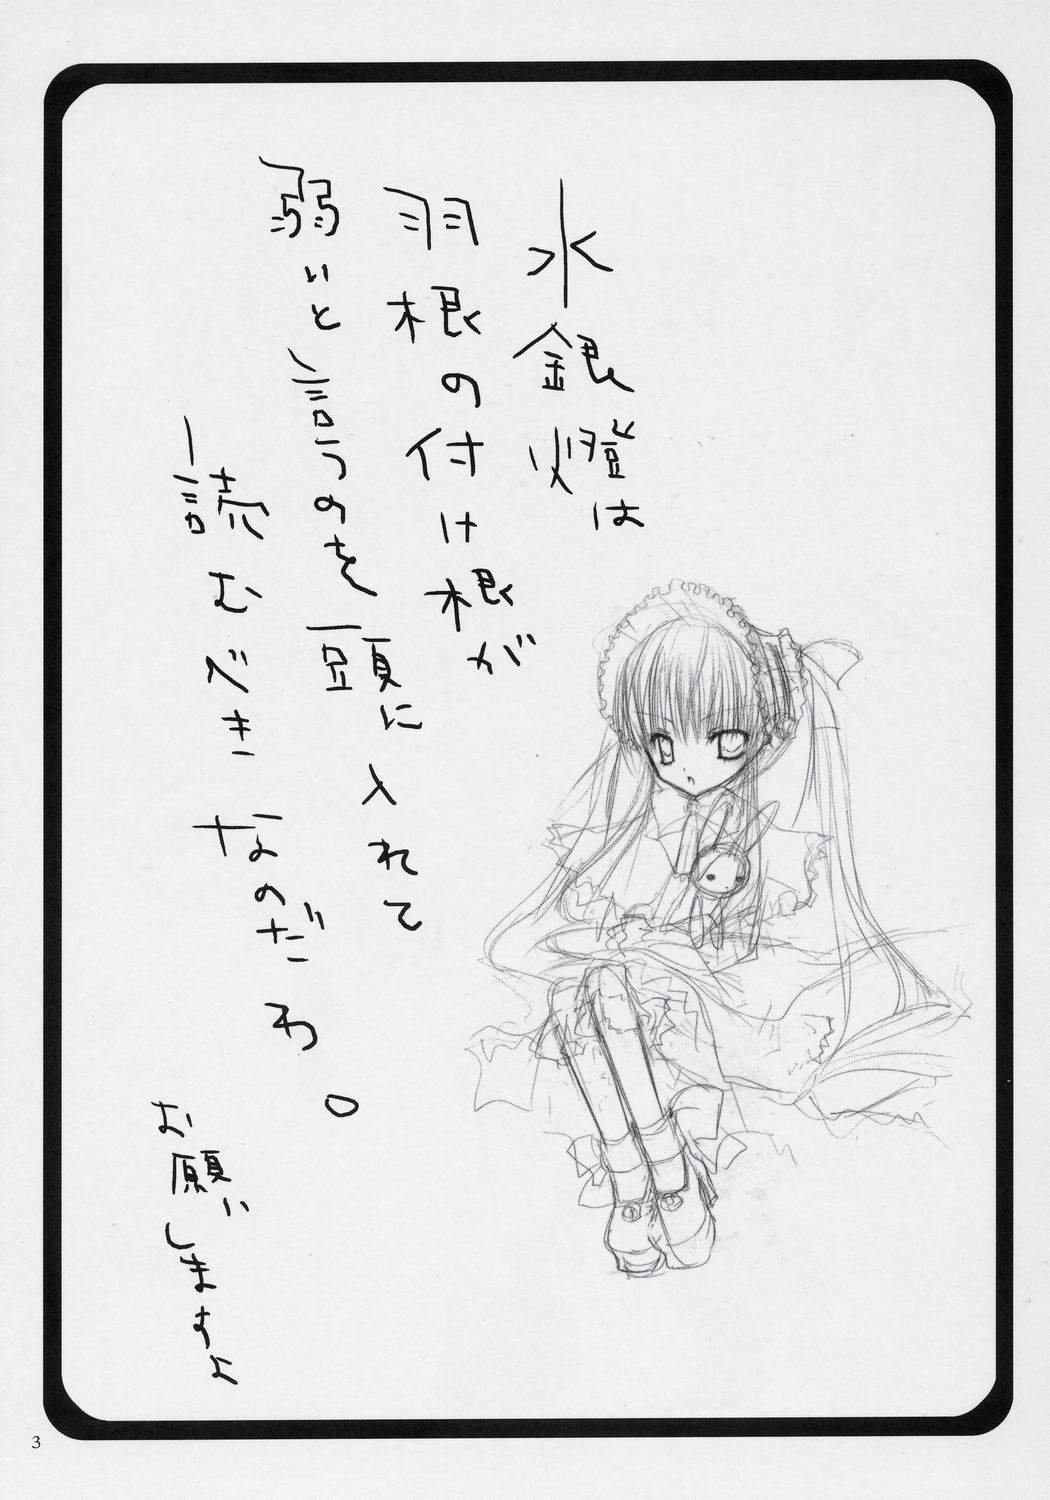 水銀燈は
羽根の付け根が
弱いと言うのを頭に入れて
読むべきなのだわ。
お願いしますよ
3